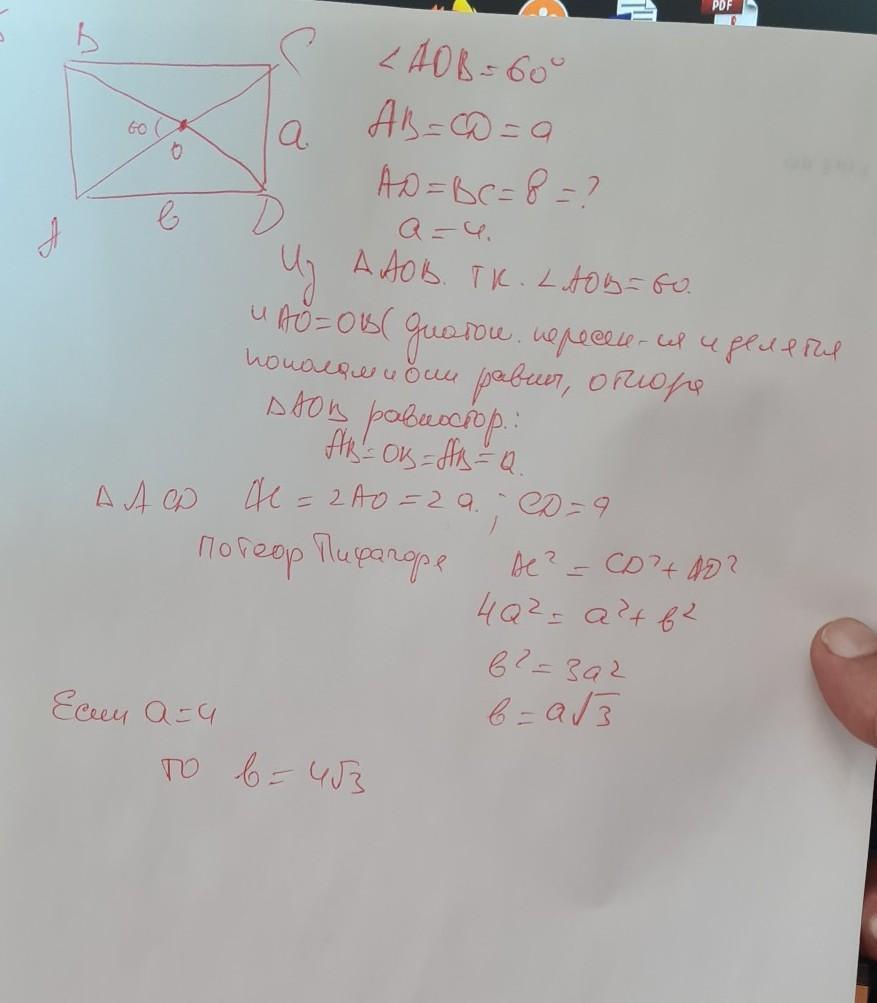 B C
60 O a
A в D
∠AOB = 60°
AB = CD = a
AD = BC = в = ?
a = 4.
Из ΔAOB. тк. ∠AOB = 60.
и AO = OB (диагон. пересек-ся и делятся
пополам и они равны, отсюда
ΔAOB равностор.:
AB = OB = AB = a.
ΔACD AC = 2AO = 2a. ; CD = a
По теор Пифагора AC² = CD² + AD²
4a² = a² + в²
в² = 3a²
в = a√3
Если a = 4
то в = 4√3
PDF